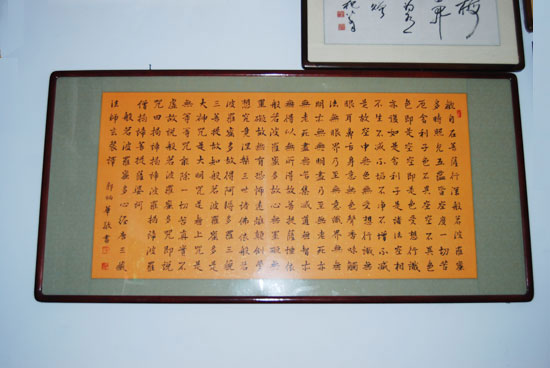 觀自在菩薩行深般若波羅蜜
多時照見五蘊皆空度一切苦
厄舍利子色不異空空不異色
色即是空空即是色受想行識
亦復如是舍利子是諸法空相
不生不滅不垢不淨不增不減
是故空中無色無受想行識無
眼耳鼻舌身意無色聲香味觸
法無眼界乃至無意識界無無
明亦無無明盡乃至無老死亦
無老死盡無苦集滅道無智亦
無得以無所得故菩提薩埵依
般若波羅蜜多故心無罣礙無
罣礙故無有恐怖遠離顛倒夢
想究竟涅槃三世諸佛依般若
波羅蜜多故得阿耨多羅三藐
三菩提故知般若波羅蜜多是
大神咒是大明咒是無上咒是
無等等咒能除一切苦真實不
虛故說般若波羅蜜多咒即說
咒曰揭諦揭諦波羅揭諦波羅
僧揭諦菩提薩婆訶
般若波羅蜜多心經唐三藏
法師玄奘譯 華敬書